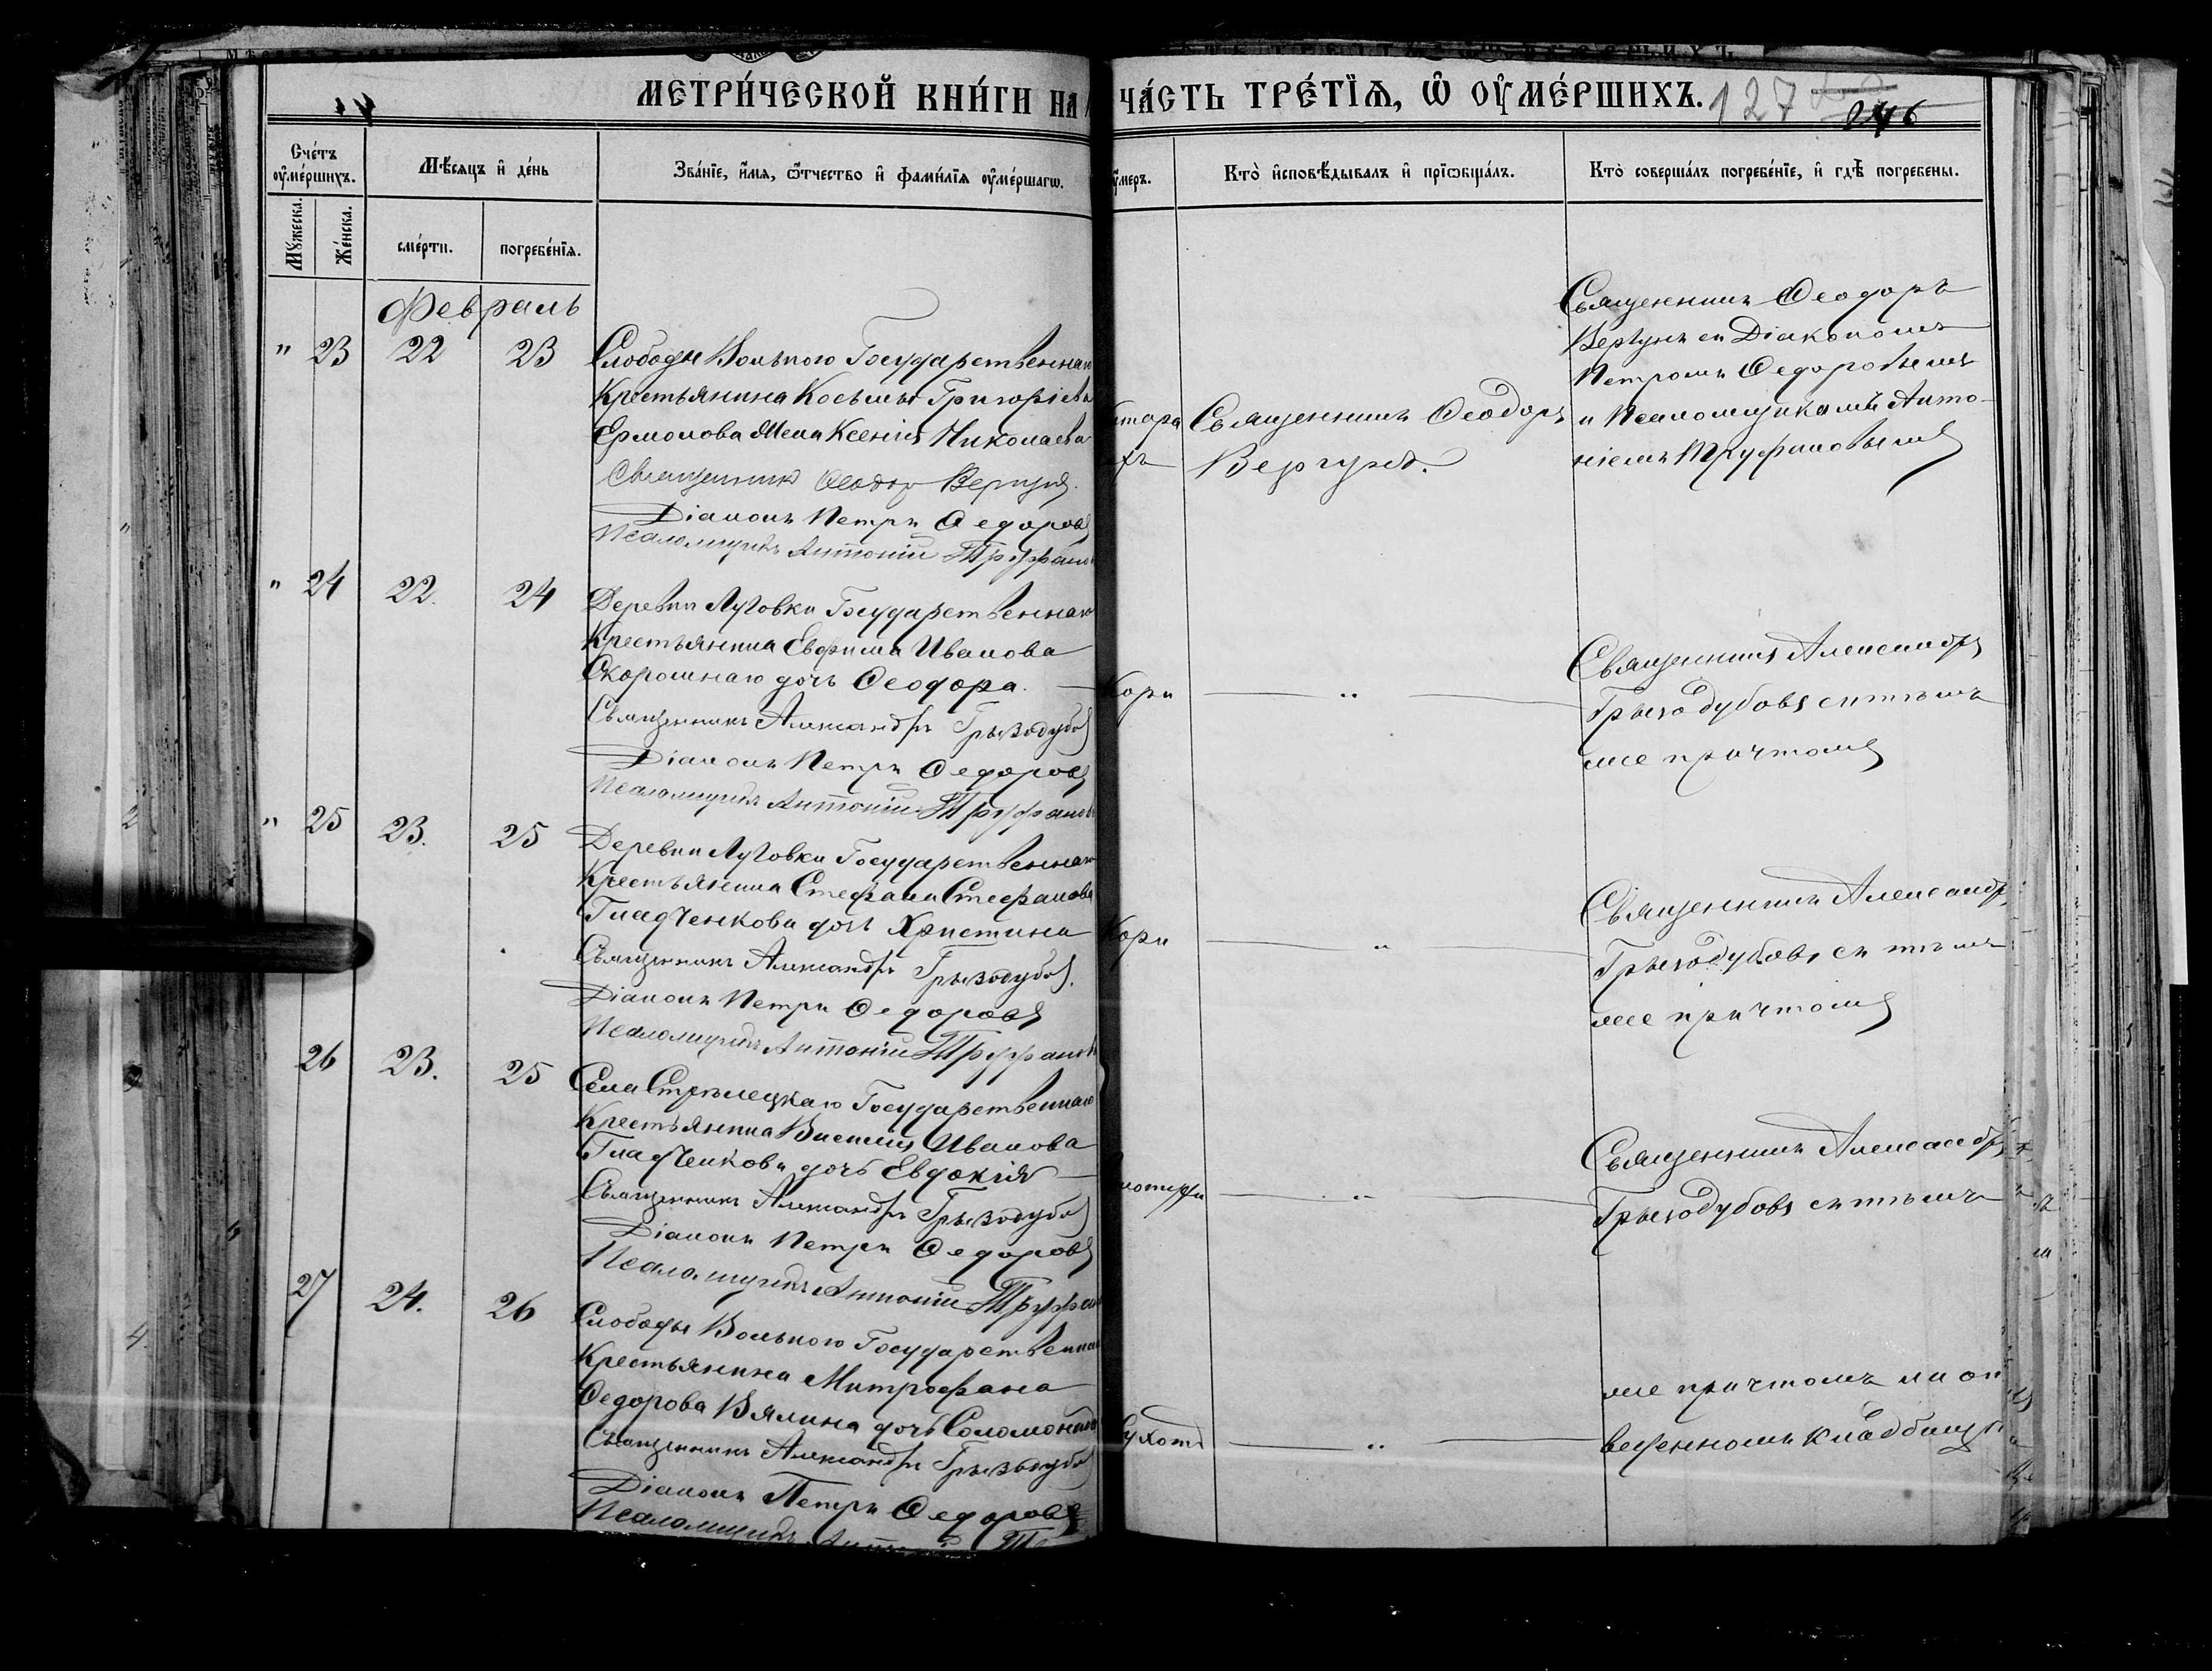 МЕТРИ́ЧЕСКОЙ КНИ́ГИ НА
ЧА́СТЬ ТРЕ́ТЇѦ, Ѡ ОУ҆МЕ́РШИХЪ.
127
Сче́тъ
оу҆ме́ршихъ.
Мѣ́сяцъ и҆ де́нь
Зва́нїе, и҆́мя, ѻ҆́тчество и҆ фами́лїя оу҆ме́ршагѡ.
Мꙋ́жеска.
Же́нска.
сме́рти.
погребе́нїя.
оу҆́меръ.
Кто̀ и҆сповѣ́дывалъ и҆ прїѡбща́лъ.
Кто̀ соверша́лъ погребе́нїе, и҆ гдѣ̀ погребены.
Февраль
" 23 22 23
Слободы Вольного Государственнаго
Крестьянина Косьмы Григоріева
Ермолова жена Ксенія Николаева
Священникъ Ѳеодоръ Вергунъ.
Діаконъ Петръ Ѳедоровъ
Псаломщикъ Антоній Труфановъ
Священникъ Ѳеодоръ
Вергунъ.
Священникъ Ѳеодоръ
Вергунъ съ Діакономъ
Петромъ Ѳедоровымъ
и Псаломщикомъ Анто-
ніемъ Труфановымъ
" 24 22. 24
Деревни Луговки Государственнаго
Крестьянина Евфима Иванова
Скорошнаго дочь Ѳеодора.
Священникъ Александръ Грызодубовъ
Діаконъ Петръ Ѳедоровъ
Псаломщикъ Антоній Труфановъ
Кори — " —
Священникъ Александръ
Грызодубовъ съ тѣмъ
же причтомъ
" 25 23. 25
Деревни Луговки Государственнаго
Крестьянина Стефана Стефанова
Гладченкова дочь Христина
Священникъ Александръ Грызодубовъ.
Діаконъ Петръ Ѳедоровъ
Псаломщикъ Антоній Труфановъ
Кори — " —
Священникъ Александръ
Грызодубовъ съ тѣмъ
же причтомъ
26 23. 25
Села Стрѣлецкаго Государственнаго
Крестьянина Василія Иванова
Гладченкова дочь Евдокія
Священникъ Александръ Грызодубовъ
Діаконъ Петръ Ѳедоровъ
Псаломщикъ Антоній Труфановъ
— " —
Священникъ Александръ
Грызодубовъ съ тѣмъ
27 24. 26
Слободы Вольного Государственнаго
Крестьянина Митрофана
Ѳедорова Вялина дочь Соломонида
Священникъ Александръ Грызодубовъ
Діаконъ Петръ Ѳедоровъ
Псаломщикъ Антоній
— " —
же причтомъ на от
веденномъ кладбищѣ